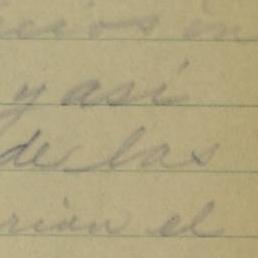 y así
de las
rian el